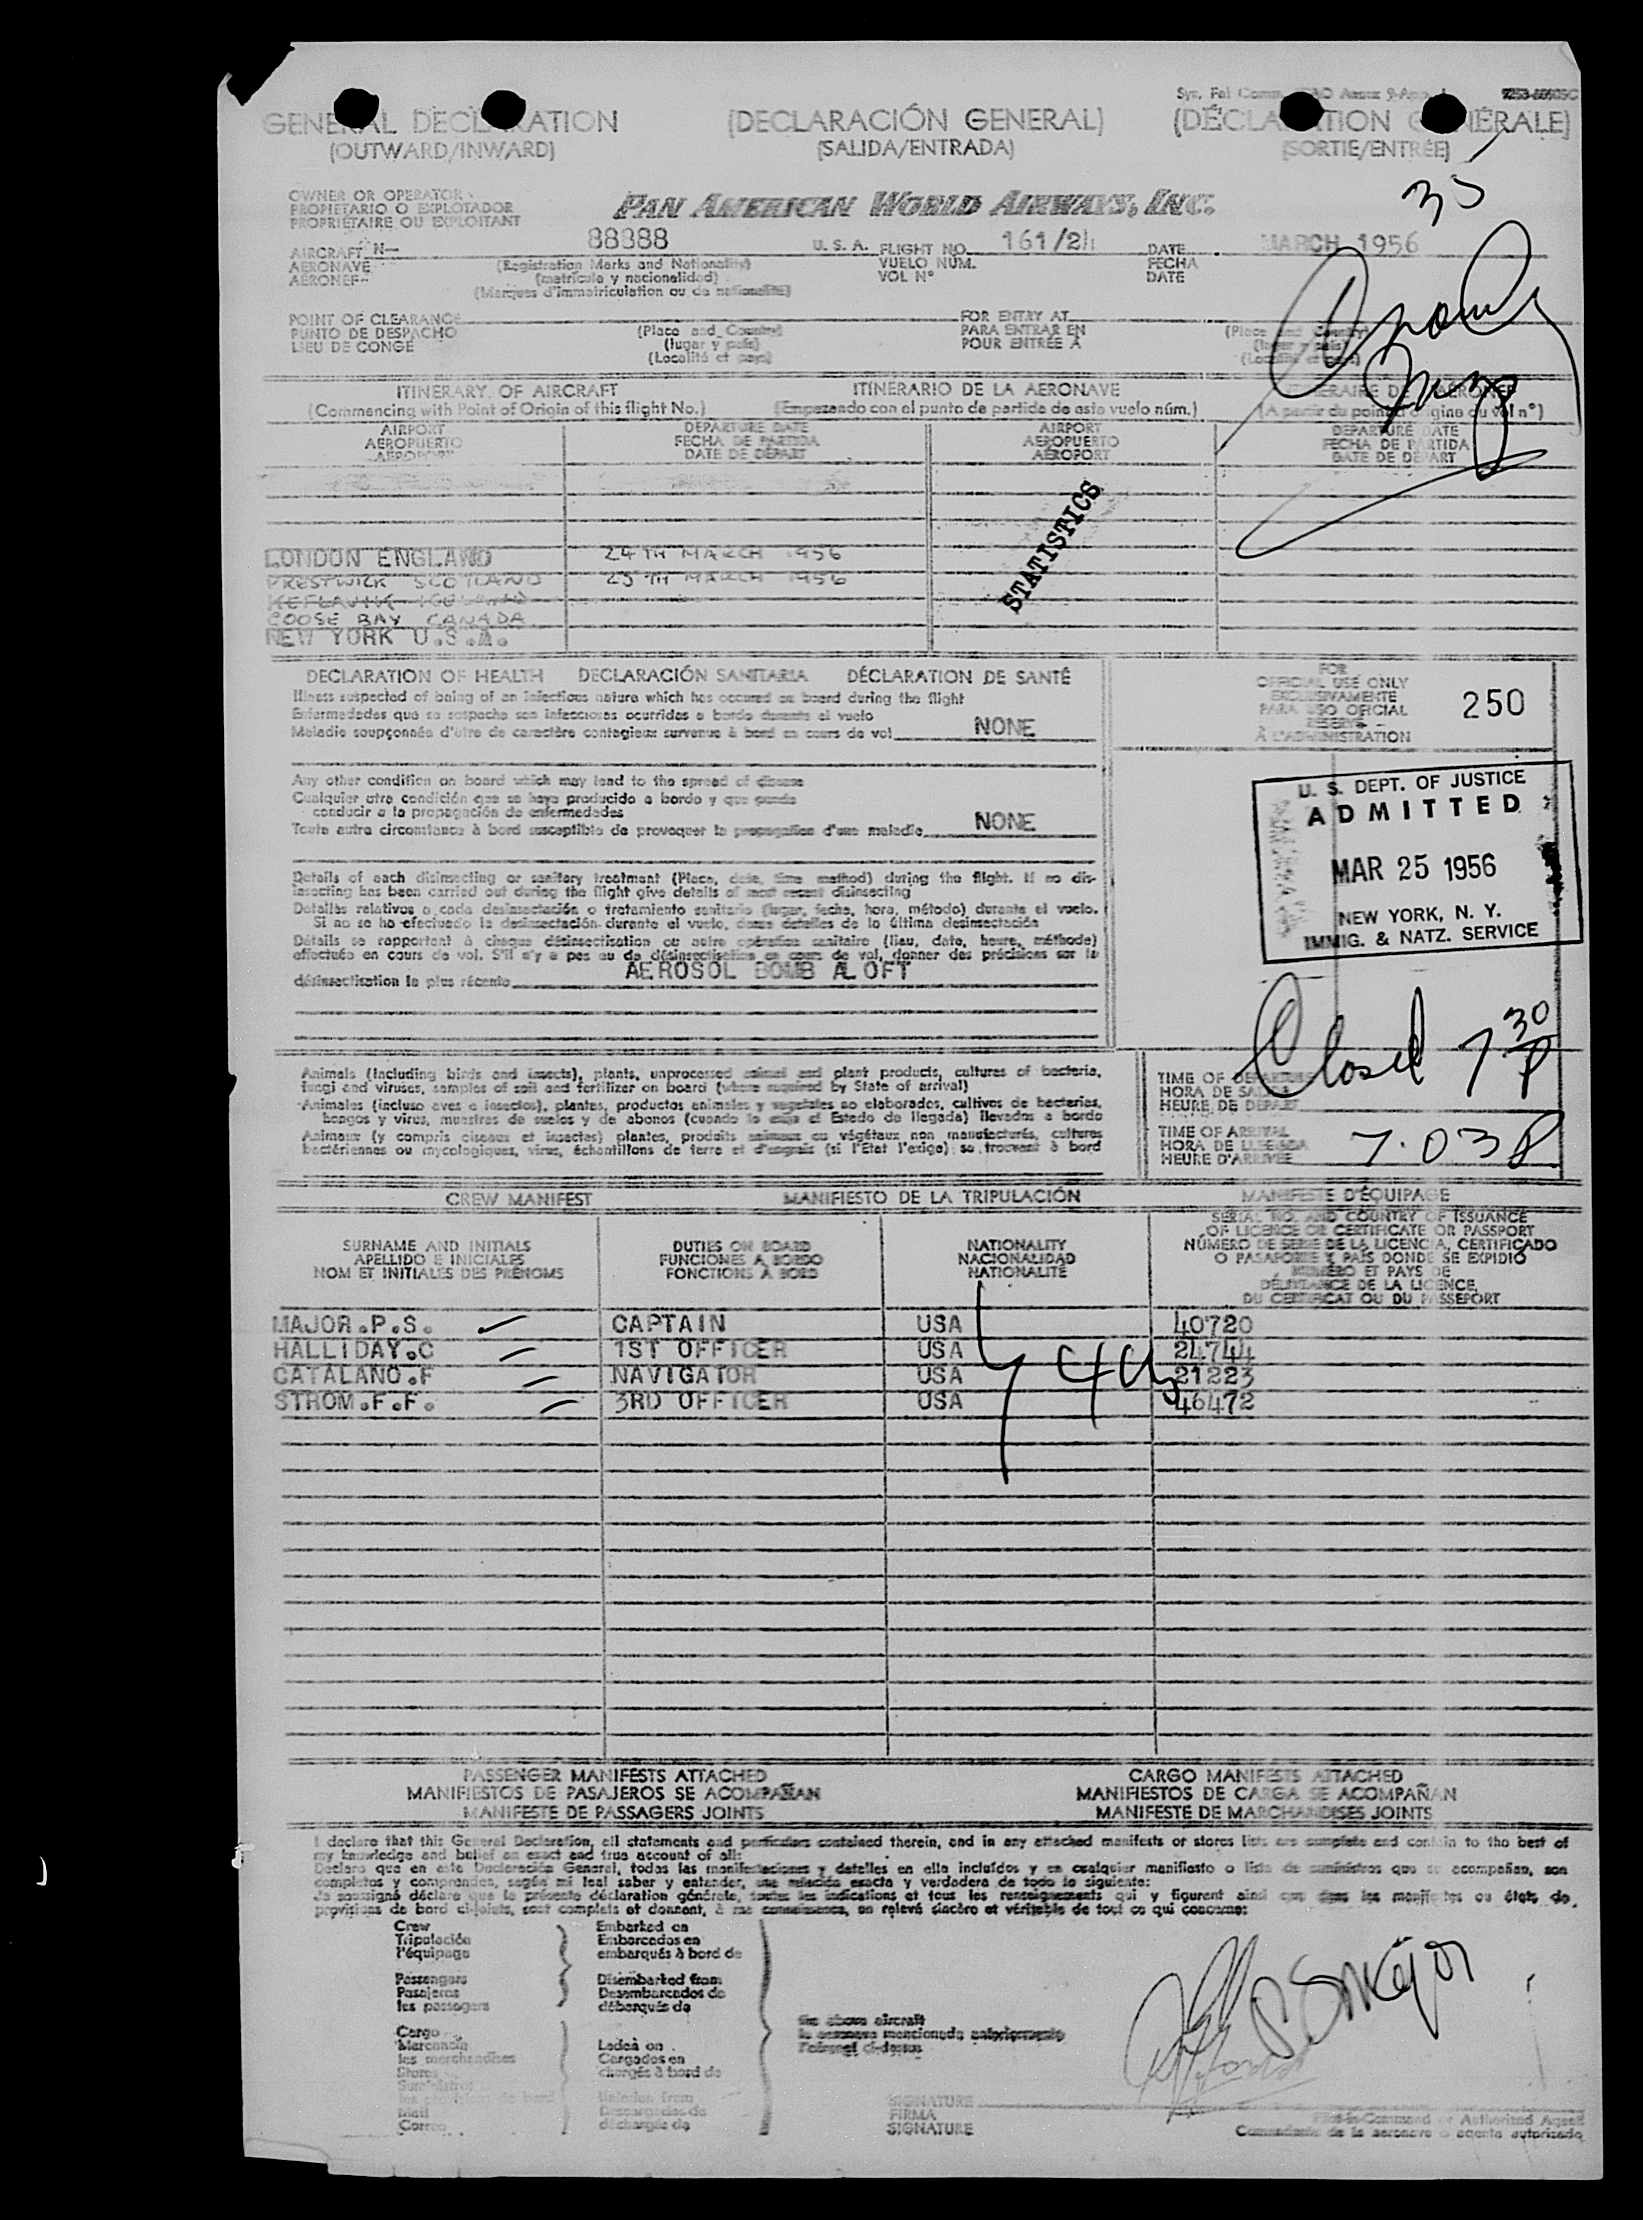 GENERAL DECLARATION (DECLARACIÓN GENERAL) (DÉCLARATION GÉNÉRALE)
(OUTWARD/INWARD) (SALIDA/ENTRADA) (SORTIE/ENTRÉE)
35
OWNER OR OPERATOR
PROPIETARIO O EXPLOTADOR PAN AMERICAN WORLD AIRWAYS, INC.
PROPRIÉTAIRE OU EXPLOITANT
AIRCRAFT N— 88888 U. S. A. FLIGHT NO. 161/24 DATE MARCH 1956
AERONAVE (Registration Marks and Nationality) VUELO NÚM. FECHA
AÉRONEF (matrícula y nacionalidad) VOL Nº DATE
(Marques d'immatriculation ou de nationalité)
POINT OF CLEARANCE FOR ENTRY AT
PUNTO DE DESPACHO (Place and Country) PARA ENTRAR EN (Place and Country)
LIEU DE CONGÉ (lugar y país) POUR ENTRÉE À (lugar y país)
(Localité et pays) (Localité et pays)
ITINERARY OF AIRCRAFT ITINERARIO DE LA AERONAVE ITINÉRAIRE DE L'AÉRONEF
(Commencing with Point of Origin of this flight No.) (Empezando con el punto de partida de este vuelo núm.) (A partir du point d'origine du vol nº)
AIRPORT DEPARTURE DATE AIRPORT DEPARTURE DATE
AEROPUERTO FECHA DE PARTIDA AEROPUERTO FECHA DE PARTIDA
AÉROPORT DATE DE DÉPART AÉROPORT DATE DE DÉPART
STATISTICS
LONDON ENGLAND 24TH MARCH 1956
PRESTWICK SCOTLAND 25TH MARCH 1956
KEFLAVIK ICELAND
GOOSE BAY CANADA
NEW YORK U.S.A.
DECLARATION OF HEALTH DECLARACIÓN SANITARIA DÉCLARATION DE SANTÉ
Illness suspected of being of an infectious nature which has occured on board during the flight
Enfermedades que se sospecha son infecciosas ocurridas a bordo durante el vuelo
Maladie soupçonnée d'être de caractère contagieux survenue à bord en cours de vol NONE
FOR
OFFICIAL USE ONLY
EXCLUSIVAMENTE
PARA USO OFICIAL 250
RÉSERVÉ
À L'ADMINISTRATION
Any other condition on board which may lead to the spread of disease
Cualquier otra condición que se haya producido a bordo y que pueda
conducir a la propagación de enfermedades
Toute autre circonstance à bord susceptible de provoquer la propagation d'une maladie NONE
U. S. DEPT. OF JUSTICE
ADMITTED
MAR 25 1956
NEW YORK, N. Y.
IMMIG. & NATZ. SERVICE
Details of each disinsecting or sanitary treatment (Place, date, time method) during the flight. If no dis-
insecting has been carried out during the flight give details of most recent disinsecting
Detalles relativos a cada desinsectación o tratamiento sanitario (lugar, fecha, hora, método) durante el vuelo.
Si no se ha efectuado la desinsectación durante el vuelo, dense detalles de la última desinsectación
Détails se rapportant à chaque désinsectisation ou autre opération sanitaire (lieu, date, heure, méthode)
effectuée en cours de vol. S'il n'y a pas eu de désinsectisation en cours de vol, donner des précisions sur la
désinsectisation la plus récente AEROSOL BOMB ALOFT
Closed 7 30 P
Animals (including birds and insects), plants, unprocessed animal and plant products, cultures of bacteria,
fungi and viruses, samples of soil and fertilizer on board (where required by State of arrival)
Animales (incluso aves e insectos), plantas, productos animales y vegetales no elaborados, cultivos de bacterias,
hongos y virus, muestras de suelos y de abonos (cuando lo exija el Estado de llegada) llevados a bordo
Animaux (y compris oiseaux et insectes) plantes, produits animaux ou végétaux non manufacturés, cultures
bactériennes ou mycologiques, virus, échantillons de terre et d'engrais (si l'État l'exige) se trouvant à bord
TIME OF DEPARTURE
HORA DE SALIDA
HEURE DE DÉPART
TIME OF ARRIVAL
HORA DE LLEGADA 7.03 P
HEURE D'ARRIVÉE
CREW MANIFEST MANIFIESTO DE LA TRIPULACIÓN MANIFESTE D'ÉQUIPAGE
SURNAME AND INITIALS DUTIES ON BOARD NATIONALITY
APELLIDO E INICIALES FUNCIONES A BORDO NACIONALIDAD
NOM ET INITIALES DES PRÉNOMS FONCTIONS À BORD NATIONALITÉ
SERIAL NO. AND COUNTRY OF ISSUANCE
OF LICENCE OR CERTIFICATE OR PASSPORT
NÚMERO DE SERIE DE LA LICENCIA, CERTIFICADO
O PASAPORTE Y PAÍS DONDE SE EXPIDIÓ
NUMÉRO ET PAYS DE
DÉLIVRANCE DE LA LICENCE,
DU CERTIFICAT OU DU PASSEPORT
MAJOR.P.S. CAPTAIN USA 40720
HALLIDAY.C 1ST OFFICER USA 24744
CATALANO.F NAVIGATOR USA 21223
STROM.F.F. 3RD OFFICER USA 46472
PASSENGER MANIFESTS ATTACHED CARGO MANIFESTS ATTACHED
MANIFIESTOS DE PASAJEROS SE ACOMPAÑAN MANIFIESTOS DE CARGA SE ACOMPAÑAN
MANIFESTE DE PASSAGERS JOINTS MANIFESTE DE MARCHANDISES JOINTS
I declare that this General Declaration, all statements and particulars contained therein, and in any attached manifests or stores lists are complete and contain to the best of
my knowledge and belief an exact and true account of all:
Declaro que en esta Declaración General, todas las manifestaciones y detalles en ella incluídos y en cualquier manifiesto o lista de suministros que se acompañan, son
completos y comprenden, según mi leal saber y entender, una relación exacta y verdadera de todo lo siguiente:
Je soussigné déclare que la présente déclaration générale, toutes les indications et tous les renseignements qui y figurent ainsi que dans les manifestes ou états de
provisions de bord ci-joints, sont complets et donnent, à ma connaissance, un relevé sincère et véritable de tout ce qui concerne:
Crew Embarked on
Tripulación Embarcados en
l'équipage embarqués à bord de
Passengers Disembarked from
Pasajeros Desembarcados de
les passagers débarqués de
the above aircraft
la aeronave mencionada anteriormente
l'aéronef ci-dessus
Cargo
Mercancía Loaded on
les marchandises Cargados en
Stores chargés à bord de
Suministros
les provisions de bord Unladen from
Mail Descargados de
Correo déchargés de
P S Major
SIGNATURE
FIRMA Pilot-in-Command or Authorized Agent
SIGNATURE Comandante de la aeronave o agente autorizado